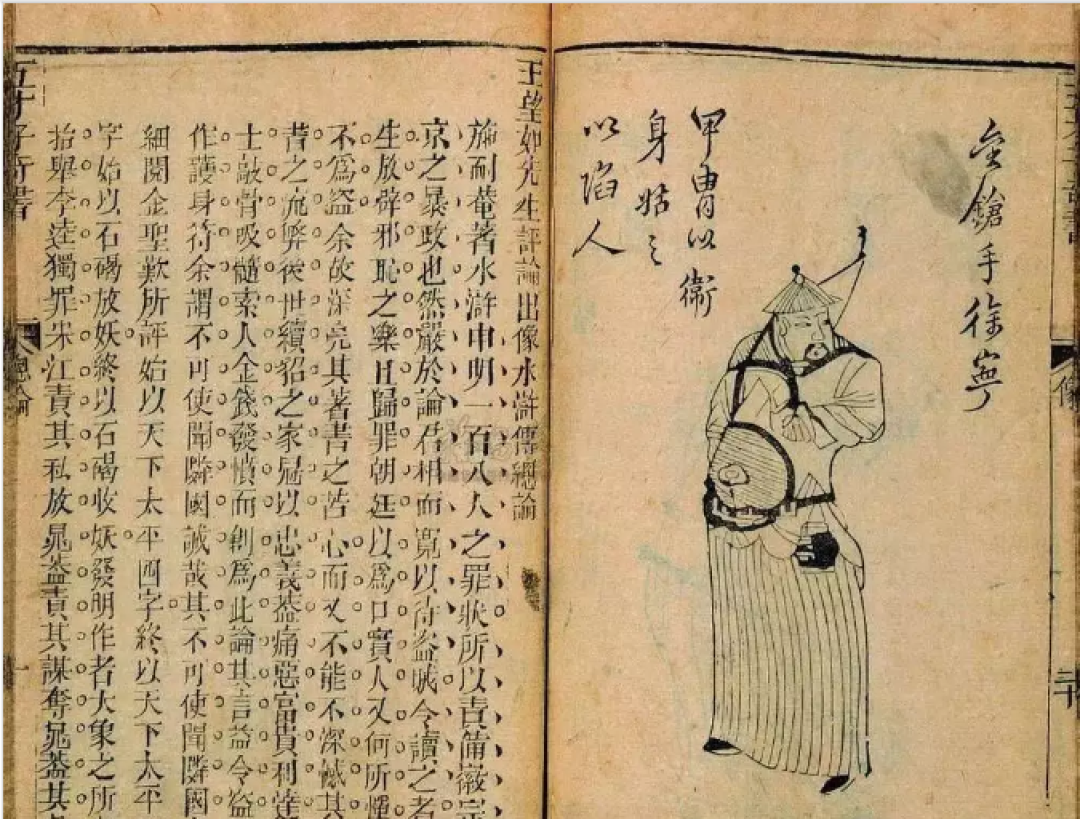 金鎗手徐寧
甲冑以衛
身姑
以陷人
像
二十
王望如先生評論出像水滸傳總論
施耐菴著水滸申明一百八人之罪狀所以責備徽宗
京之暴政也然嚴於論君相而寬以待盗賊令讀之者
生放辟邪恥之樂且歸罪朝廷以爲口實人又何所憚
不爲盗余故深亮其著書之苦心而又不能不深憾其
昔之流弊後世續貂之家冠以忠義葢痛惡富貴利達
士敲骨吸髓索人金錢發憤而創爲此論其言益令盗
作護身符余謂不可使聞隣國誠哉其不可使聞隣國
細閱金聖歎所評始以天下太平四字終以天下太平
字始以石碣放妖終以石碣收妖發明作者大象之所
抬舉李逵獨罪宋江責其私放晁葢責其謀奪晁葢其
五才子奇書
總論
一